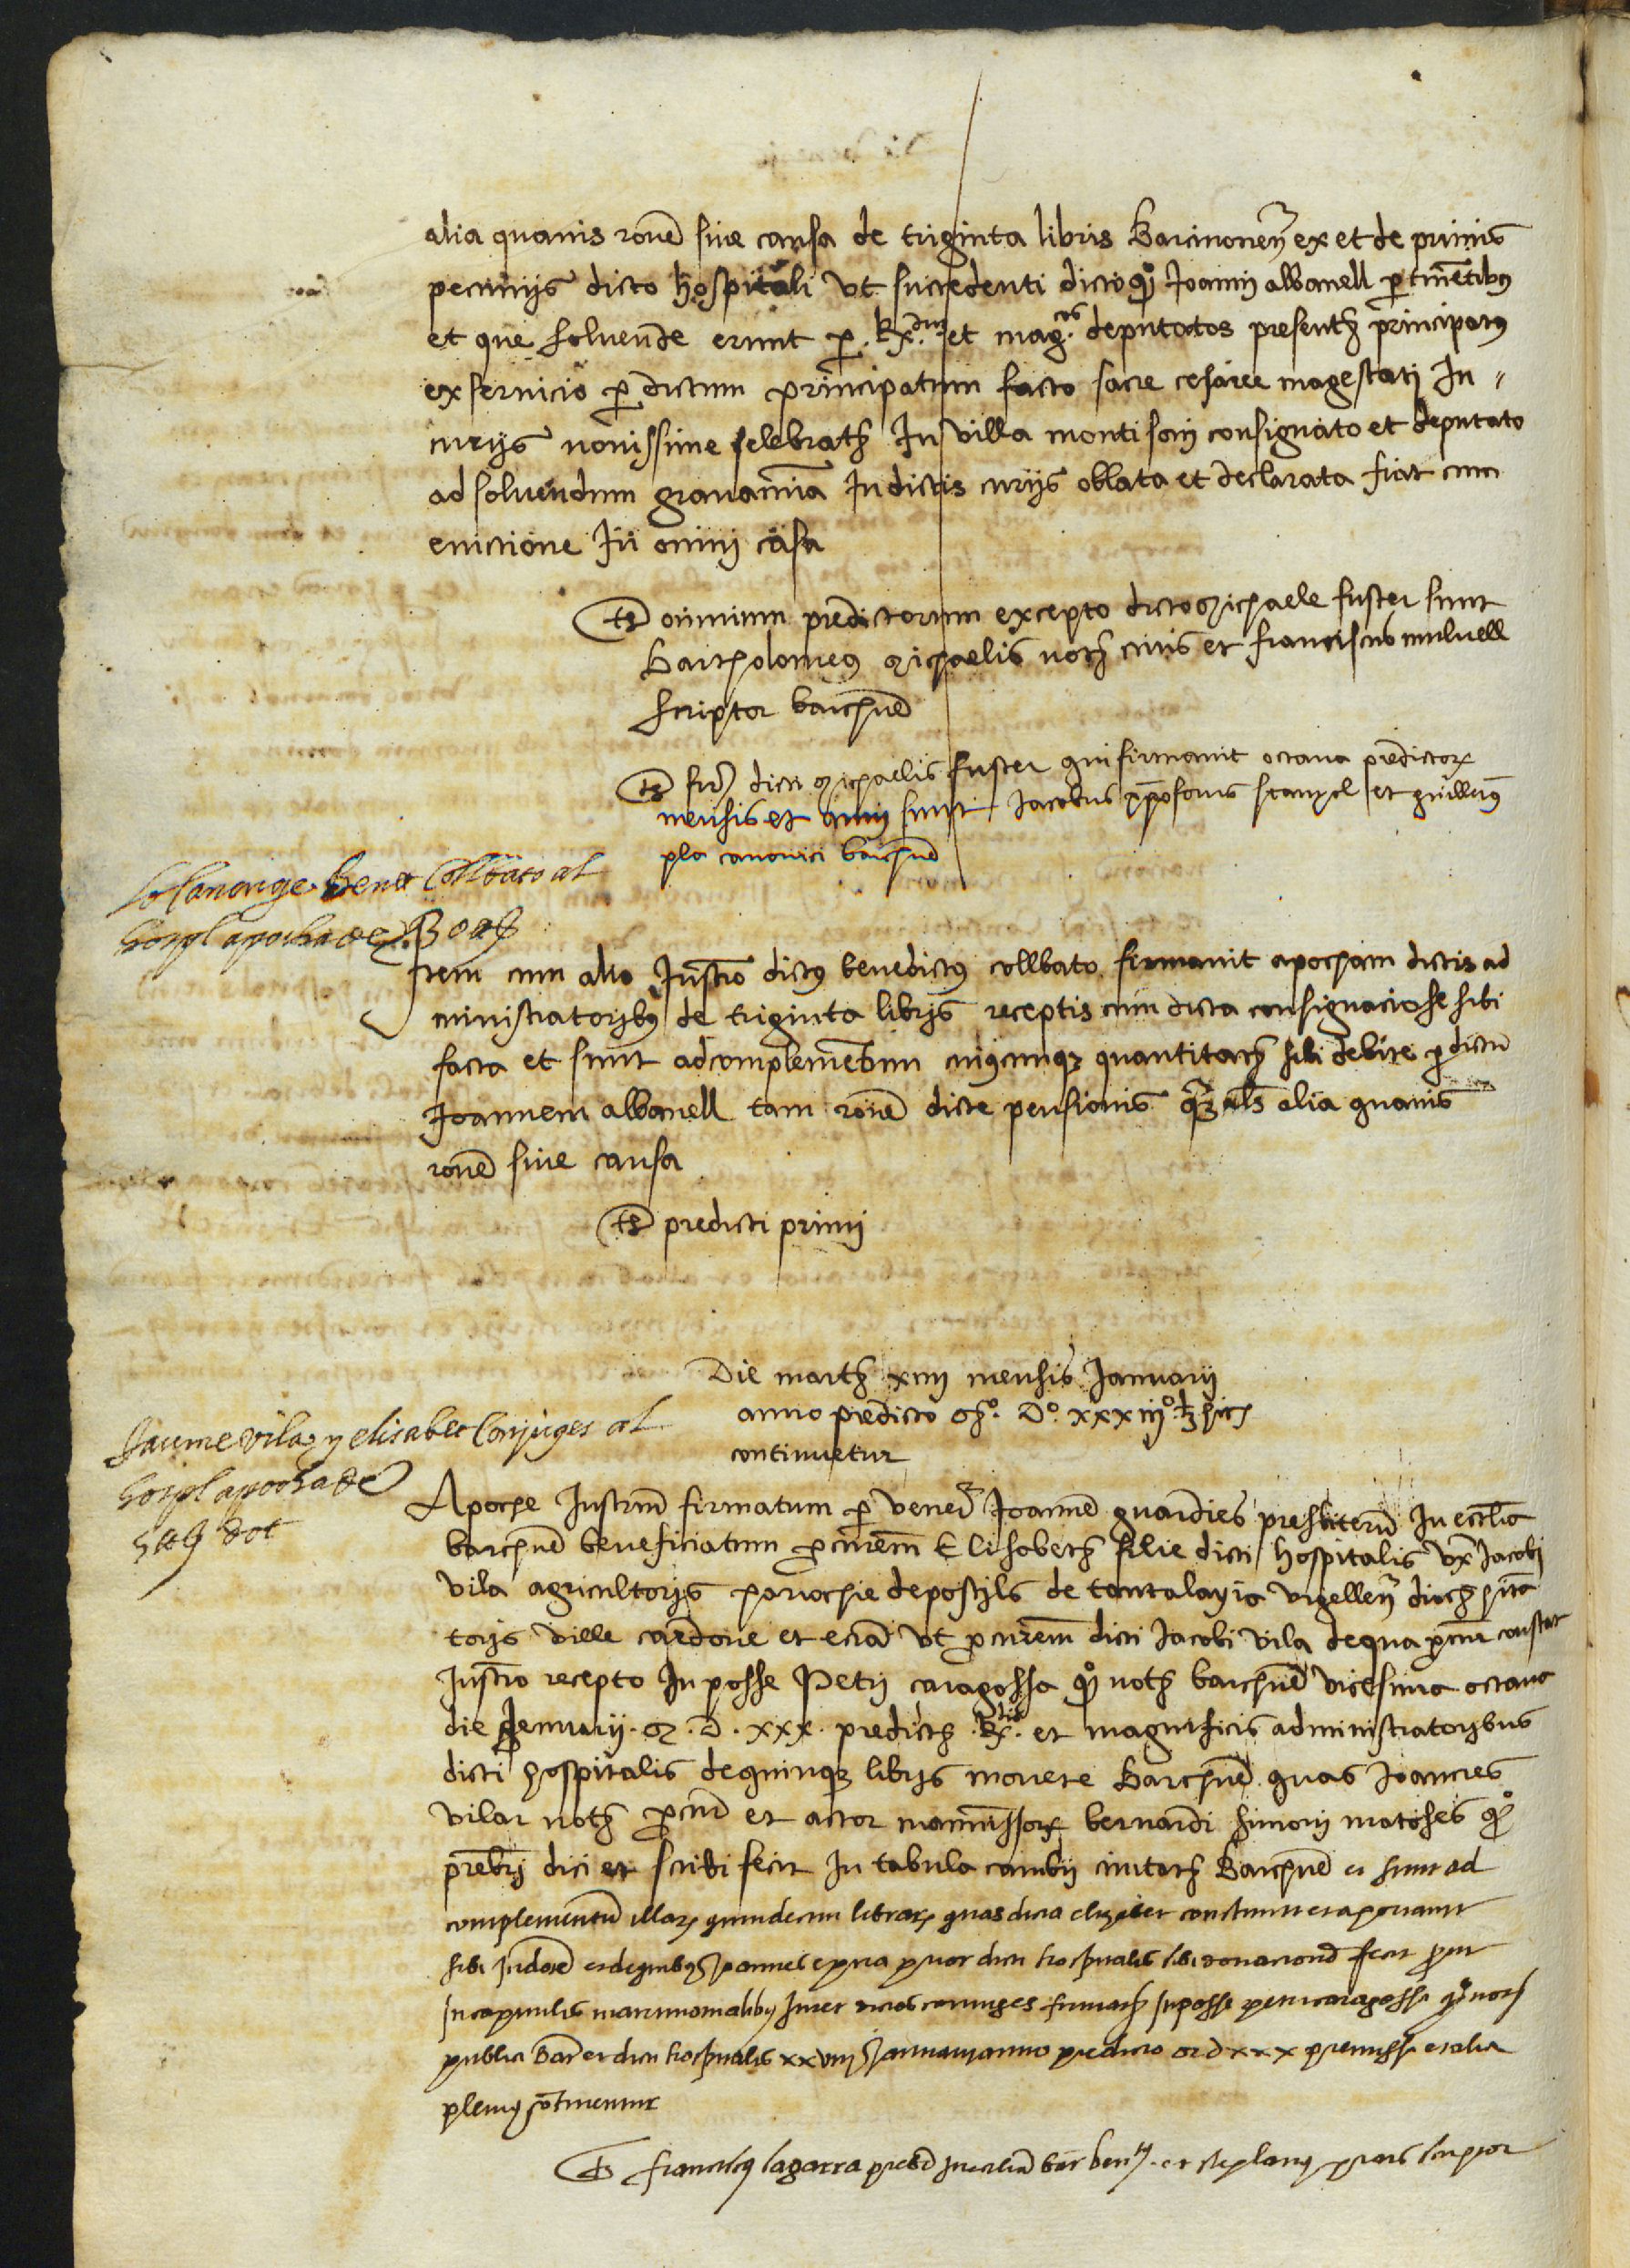 alia quamis rone sive causa de triginta libris Barcinonen ex et de primis
pecunijs dicto hospitali ut succedenti dicto qº Joanni albanell pertinetibus
et que solvende erunt per Rx.dos et mag.cos deputatos presentis principatus
ex servicio per dictum principatum facto sacre cesaree magestati In
curijs novissime selebratis In villa montisoni consignato et deputato
ad solvendum gravamina In dictis curijs oblata et declarata fiat cum
evictione In omni casu
Ts omnium predictorum excepto dicto Michaele fuster sunt
Bartholomeus Michaelis noth civis et franciscus mulnell
scriptor barchne
Ts firme dicti Michaelis fuster qui firmavit octava predictorum
mensis et anni sunt Jacobus stanyol et guillermus
pla canonici barchne
Lo Canonge Benet Collbato al
hospl apocha de 30 ll
Item cum alio Instro dictus benedictus collbato firmavit apocham dictis ad
ministratoribus de triginta libris receptis cum dicta consignacione sibi
facta et sunt ad complemetum cuiuscunque quantitatis sibi debite per dictu
Joannem albanell tam rone dicte pensionis als alia quamis
rone sive causa
Ts predicti primi
Die martis xiiij mensis Januarij
anno predicto Mº Dº xxxiiijº
continuetur
Jaume vila y elisabet Conjuges al
hospl apocha de
5 ll dot
Apoche Instrum firmatum per vener Joanne guardies presbiteru In ecclia
barchne beneficiatum procurem Elisabeth filie dicti hospitalis ux Jacobi
vila agricultoris parrochie de postils de tantalayia urgellen dioch
toris ville cardone et ecia ut procurem dicti Jacobi vila de qua constat
Instro recepto In posse Petri caragossa qº noth barchne vicesima octava
die Jenuarij M D xxx predictis Rx.dis et magnificis administratoribus
dicti hospitalis de quinque libris monete Barchne quas Joannes
vilar noth procur et actor manumissorum bernardi simon matoses qº
prebri dici et scribi fecit In tabula cambij civitatis Barchne et sunt ad
complementu illarum quindecim librarum quas dicta elizabet constituit et aportavit
sibi In dote et de quibus Joannes prior dicti hospitalis sibi donacione fecit prout
In capitulis matrimonialibus Inter dictos coniuges firmatis In posse petri caragossa qº noth
publici Bar et dicti hospitalis xxviij Januarij anno predicto M D xxx premissa et alia
plenius cotinentur
Ts franciscus sagarra prebr In ecclia bar et stephanus prats scriptor